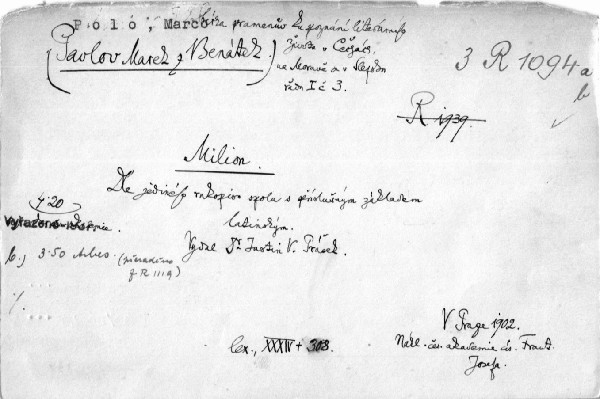 Póló, Marco
Sbírka pramenův ku poznání literárního
(Pavlov Marek z Benátek.) života v Čechách,
na Moravě a v Slezsku
řada I č 3.
3 R 1094 a
b
R 1939.
Milion.
Dle jediného rukopisu spolu s příslušným základem
latinským.
Vydal Dr. Justin V. Prášek.
4·20
Vyřazeno 1951.
b.) 3·50 Arbes. (přeřaděno
z R 1119)
V Praze 1902.
Nákl. čes. akademie cís. Frant.
Josefa.
lex., XXXIV + 303.